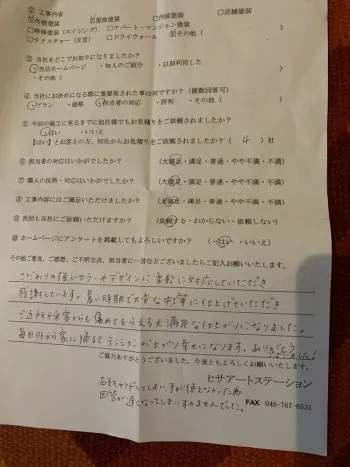 ② 工事内容
☑外壁塗装 ☑屋根塗装 □内装塗装 □店舗塗装
□特殊塗装（エイジング）□アパート・マンション塗装
□テクスチャー（左官） □ドライウォール ☑その他（ ）
③ 当社をどこでお知りになりましたか？
・当店ホームページ ・知人のご紹介 ・以前利用した
・その他（ ）
④ 当社にお決めになる際に重要視された事は何ですか？（複数回答可）
・プラン ・価格 ・担当者の対応 ・評判 ・その他（ ）
⑤ 今回の施工に至るまでに他社様でもお見積りをご依頼されましたか？
・はい ・いいえ
【はい】とお答えの方、何社からお見積りをご依頼されましたか？（ 4 ）社
⑥ 担当者の対応はいかがでしたか？ （大満足・満足・普通・やや不満・不満）
⑦ 職人の技術・対応はいかがでしたか？ （大満足・満足・普通・やや不満・不満）
⑧ 工事内容にはご満足いただけましたか？ （大満足・満足・普通・やや不満・不満）
⑨ 次回も当社にご依頼いただけますか？ （依頼する・わからない・依頼しない）
⑩ ホームページにアンケートを掲載してもよろしいですか？ （・はい ・いいえ）
その他ご意見、ご感想、ご不明な点、担当者に一言などございましたらご記入お願いします。
こだわりの強いカラーやデザインに柔軟に対応していただき
感謝しています。暑い時期で大変な中丁寧に仕上げていただき
ご近所や来客からも褒めてもらえる大満足な仕上がりになりました。
毎日外から家に帰るとテンションが上がり幸せになります。ありがとうございました！
ご協力ありがとうございました。今後ともよろしくお願いいたします。
ヒサアートステーション
FAX: 046-767-6531
右手をヤケドしてしまい手が使えなかった為
回答が遅くなってしまいすみませんでした。